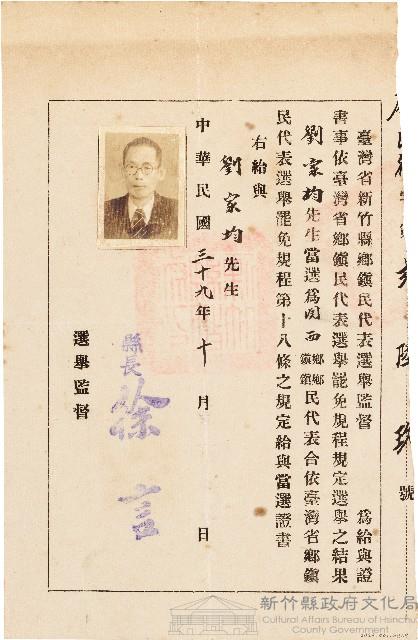 號
臺灣省新竹縣鄉鎮民代表選舉監督 為給與證
書事依臺灣省鄉鎮民代表選舉罷免規程規定選舉之結果
劉家均先生當選為関西鄉鎮鄉鎮民代表合依臺灣省鄉鎮
民代表選舉罷免規程第十八條之規定給與當選證書
右給與
劉家均先生
中華民國三十九年十月 日
縣長徐言
選舉監督
新竹縣政府文化局
Cultural Affairs Bureau of Hsinchu
County Government